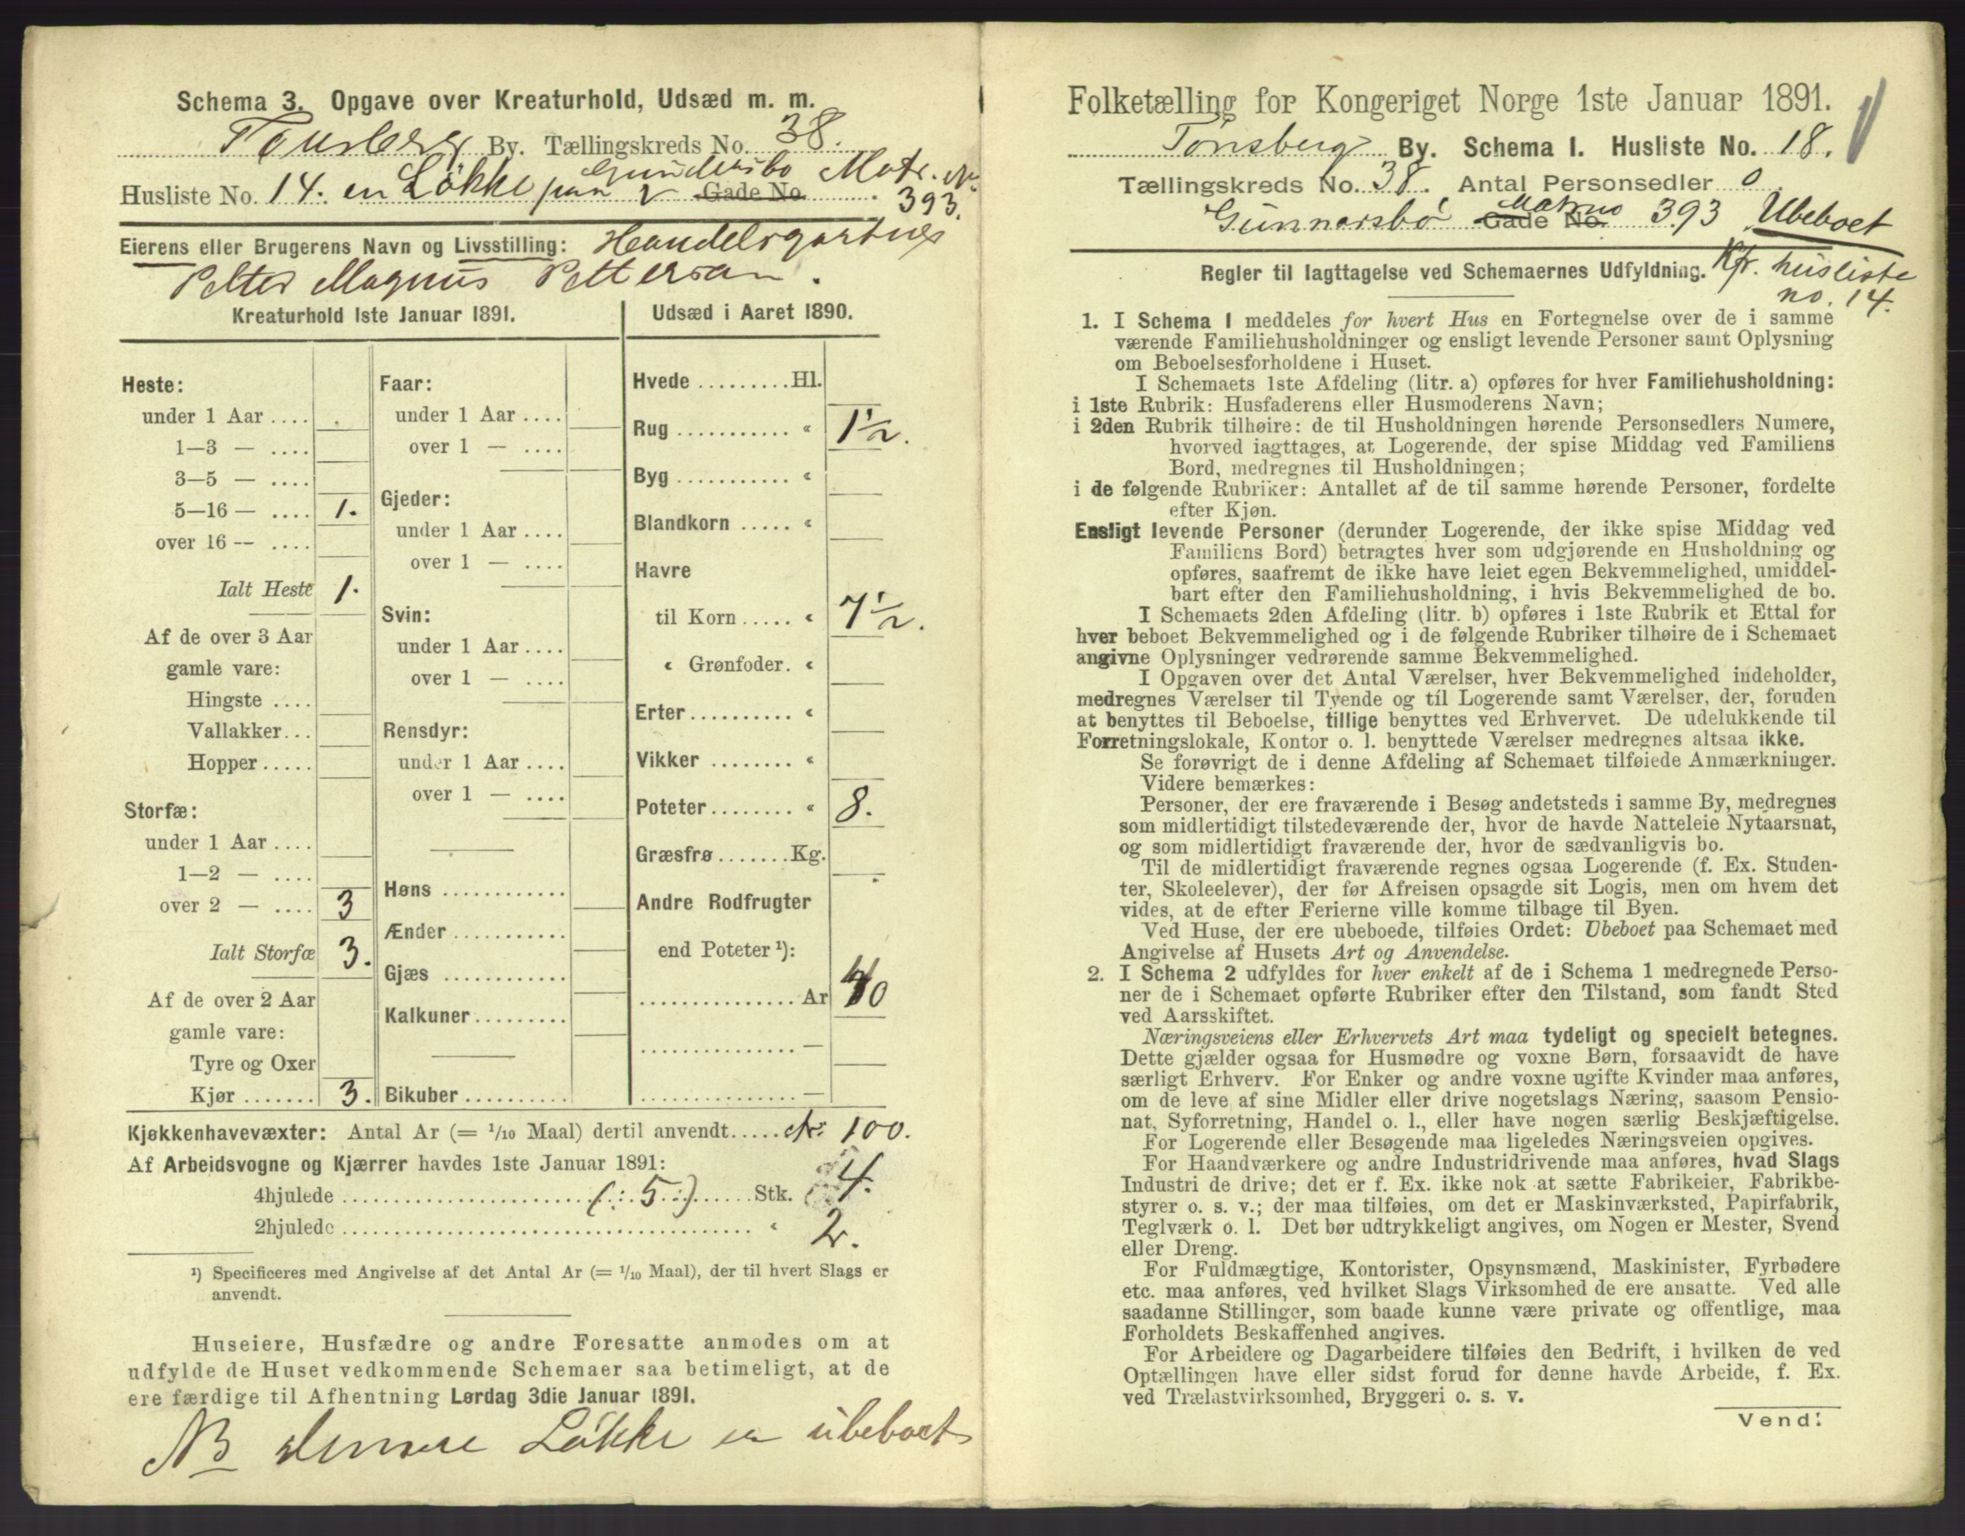 Schema 3. Opgave over Kreaturhold, Udsæd m. m.
Tønsberg By. Tællingskreds No. 38.
Husliste No. 14. en Løkke paa Gundersbø Matr. No Gade No 393.
Eierens eller Brugerens Navn og Livsstilling: Handelsgartner
Petter Magnus Pettersen.
Kreaturhold 1ste Januar 1891.
Heste:
under 1 Aar ....
1—3 — ....
3—5 — ....
5—16 — .... 1.
over 16 — ....
Ialt Heste 1.
Af de over 3 Aar
gamle vare:
Hingste ....
Vallakker...
Hopper.....
Storfæ:
under 1 Aar ....
1—2 — ....
over 2 — .... 3
Ialt Storfæ 3.
Af de over 2 Aar
gamle vare:
Tyre og Oxer
Kjør ....... 3.
Faar:
under 1 Aar ....
over 1 — ....
Gjeder:
under 1 Aar ....
over 1 — ....
Svin:
under 1 Aar ....
over 1 — ....
Rensdyr:
under 1 Aar ....
over 1 — ....
Høns ............
Ænder ...........
Gjæs ............
Kalkuner.........
Bikuber ..........
Udsæd i Aaret 1890.
Hvede .........Hl.
Rug ........... « 1½.
Byg ........... «
Blandkorn ..... «
Havre
til Korn ..... « 7½.
« Grønfoder. «
Erter.......... «
Vikker ........ «
Poteter ........ « 8.
Græsfrø .......Kg.
Andre Rodfrugter
end Poteter ¹):
............... Ar 40
............... —
............... —
Kjøkkenhavevæxter: Antal Ar (= 1/10 Maal) dertil anvendt..... Ar. 100.
Af Arbeidsvogne og Kjærrer havdes 1ste Januar 1891:
4hjulede ........ (: 5 :) ...... Stk. 4.
2hjulede ........................ « 2.
¹) Specificeres med Angivelse af det Antal Ar (= 1/10 Maal), der til hvert Slags er
anvendt.
Huseiere, Husfædre og andre Foresatte anmodes om at
udfylde de Huset vedkommende Schemaer saa betimeligt, at de
ere færdige til Afhentning Lørdag 3die Januar 1891.
NB denne Løkke er ubeboet
Folketælling for Kongeriget Norge 1ste Januar 1891.
Tønsberg By. Schema I. Husliste No. 18.
Tællingskreds No. 38. Antal Personsedler 0
Gunnarsbø Gade No. Matr no 393 Ubeboet
Regler til Iagttagelse ved Schemaernes Udfyldning. Kfr. husliste
no. 14.
1. I Schema 1 meddeles for hvert Hus en Fortegnelse over de i samme
værende Familiehusholdninger og ensligt levende Personer samt Oplysning
om Beboelsesforholdene i Huset.
I Schemaets 1ste Afdeling (litr. a) opføres for hver Familiehusholdning:
i 1ste Rubrik: Husfaderens eller Husmoderens Navn;
i 2den Rubrik tilhøire: de til Husholdningen hørende Personsedlers Numere,
hvorved iagttages, at Logerende, der spise Middag ved Familiens
Bord, medregnes til Husholdningen;
i de følgende Rubriker: Antallet af de til samme hørende Personer, fordelte
efter Kjøn.
Ensligt levende Personer (derunder Logerende, der ikke spise Middag ved
Familiens Bord) betragtes hver som udgjørende en Husholdning og
opføres, saafremt de ikke have leiet egen Bekvemmelighed, umiddel-
bart efter den Familiehusholdning, i hvis Bekvemmelighed de bo.
I Schemaets 2den Afdeling (litr. b) opføres i 1ste Rubrik et Ettal for
hver beboet Bekvemmelighed og i de følgende Rubriker tilhøire de i Schemaet
angivne Oplysninger vedrørende samme Bekvemmelighed.
I Opgaven over det Antal Værelser, hver Bekvemmelighed indeholder,
medregnes Værelser til Tyende og til Logerende samt Værelser, der, foruden
at benyttes til Beboelse, tillige benyttes ved Erhvervet. De udelukkende til
Forretningslokale, Kontor o. l. benyttede Værelser medregnes altsaa ikke.
Se forøvrigt de i denne Afdeling af Schemaet tilføiede Anmærkninger.
Videre bemærkes:
Personer, der ere fraværende i Besøg andetsteds i samme By, medregnes
som midlertidigt tilstedeværende der, hvor de havde Natteleie Nytaarsnat,
og som midlertidigt fraværende der, hvor de sædvanligvis bo.
Til de midlertidigt fraværende regnes ogsaa Logerende (f. Ex. Studen-
ter, Skoleelever), der før Afreisen opsagde sit Logis, men om hvem det
vides, at de efter Ferierne ville komme tilbage til Byen.
Ved Huse, der ere ubeboede, tilføies Ordet: Ubeboet paa Schemaet med
Angivelse af Husets Art og Anvendelse.
2. I Schema 2 udfyldes for hver enkelt af de i Schema 1 medregnede Perso-
ner de i Schemaet opførte Rubriker efter den Tilstand, som fandt Sted
ved Aarsskiftet.
Næringsveiens eller Erhvervets Art maa tydeligt og specielt betegnes.
Dette gjælder ogsaa for Husmødre og voxne Børn, forsaavidt de have
særligt Erhverv. For Enker og andre voxne ugifte Kvinder maa anføres,
om de leve af sine Midler eller drive nogetslags Næring, saasom Pensio-
nat, Syforretning, Handel o. l., eller have nogen særlig Beskjæftigelse.
For Logerende eller Besøgende maa ligeledes Næringsveien opgives.
For Haandværkere og andre Industridrivende maa anføres, hvad Slags
Industri de drive; det er f. Ex. ikke nok at sætte Fabrikeier, Fabrikbe-
styrer o. s. v.; der maa tilføies, om det er Maskinværksted, Papirfabrik,
Teglværk o. l. Det bør udtrykkeligt angives, om Nogen er Mester, Svend
eller Dreng.
For Fuldmægtige, Kontorister, Opsynsmænd, Maskinister, Fyrbødere
etc. maa anføres, ved hvilket Slags Virksomhed de ere ansatte. Ved alle
saadanne Stillinger, som baade kunne være private og offentlige, maa
Forholdets Beskaffenhed angives.
For Arbeidere og Dagarbeidere tilføies den Bedrift, i hvilken de ved
Optællingen have eller sidst forud for denne havde Arbeide, f. Ex.
ved Trælastvirksomhed, Bryggeri o. s. v.
Vend!